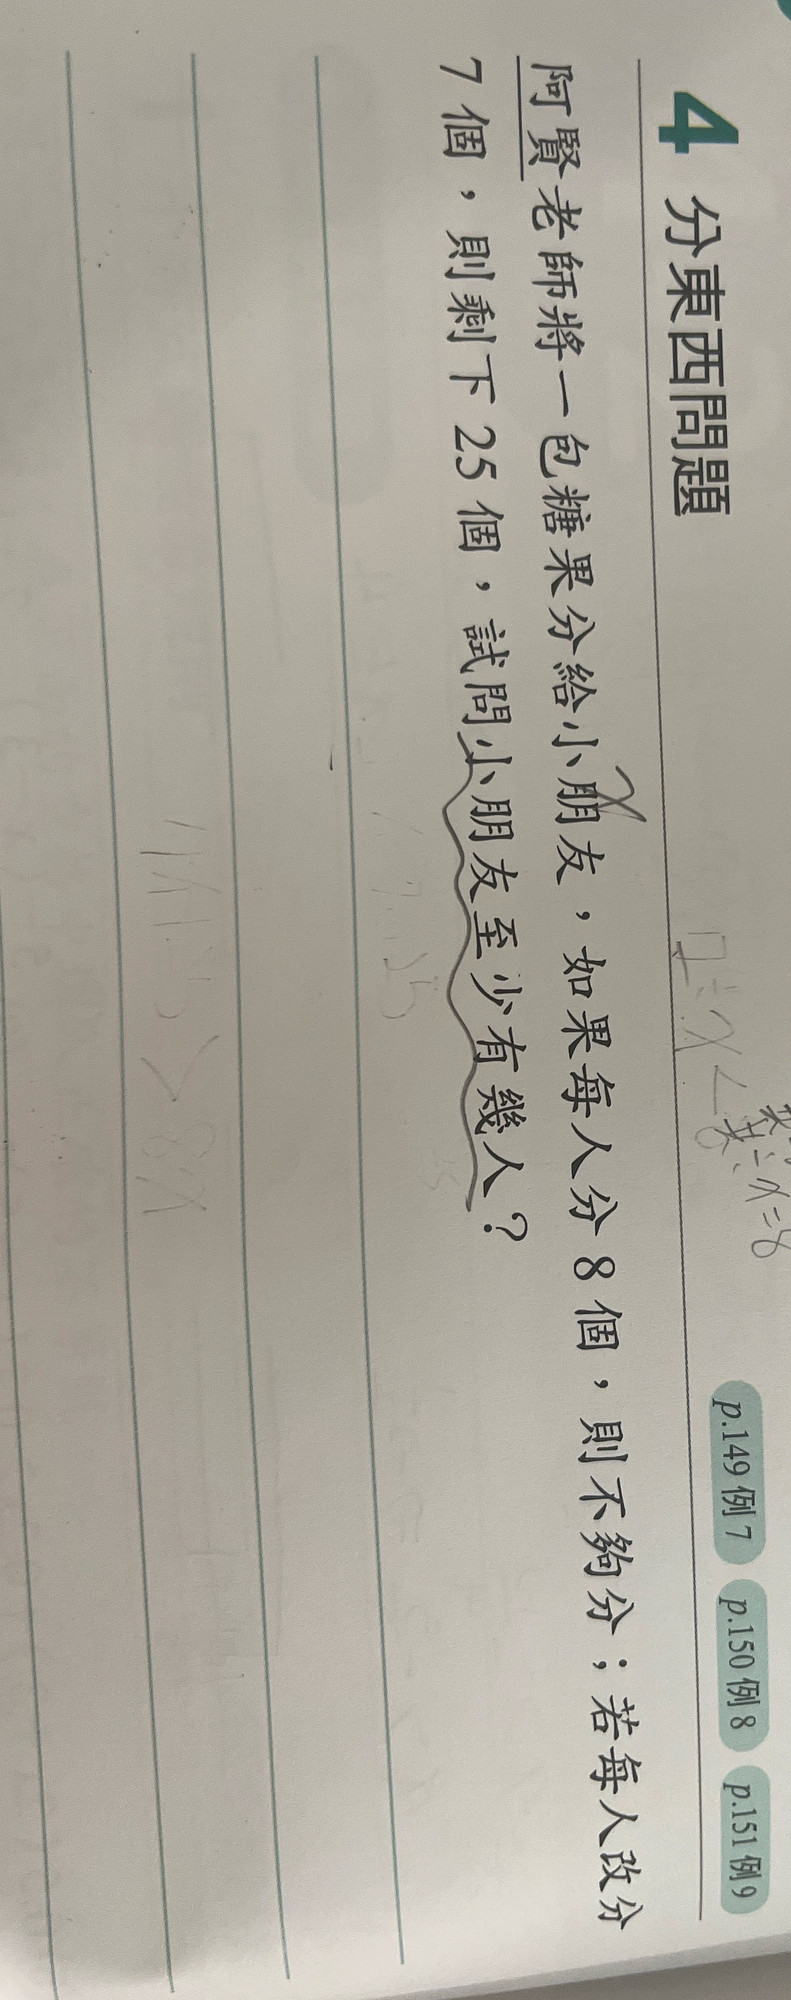 4 分東西問題
p.149 例 7 p.150 例 8 p.151 例 9
阿賢老師將一包糖果分給小朋友，如果每人分 8 個，則不夠分；若每人改分
7 個，則剩下 25 個，試問小朋友至少有幾人？
x